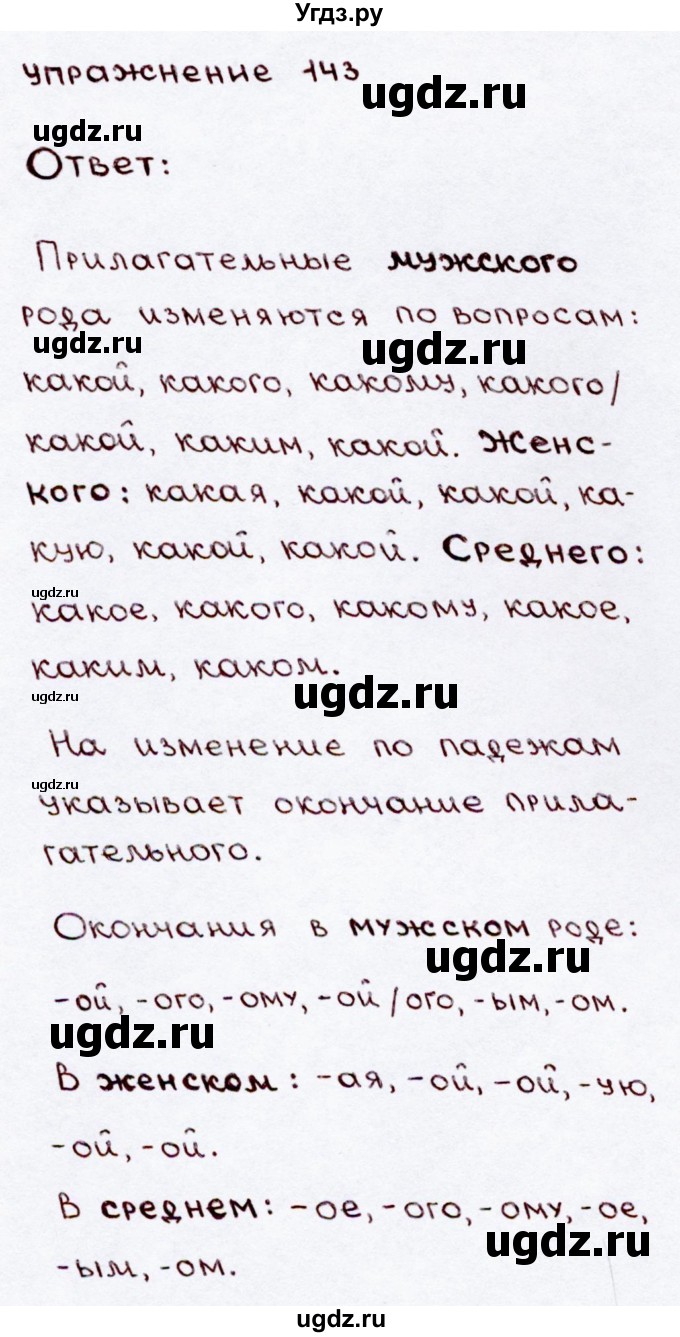 Угдз.ру
упражнение 143
ugdz.ru
ugdz.ru
Ответ:
Прилагательные мужского
рода изменяются по вопросам:
ugdz.ru
ugdz.ru
какой, какого, какому, какого/
какой, каким, какой. Женс-
кого: какая, какой, какой, ка-
кую, какой, какой. Среднего:
ugdz.ru
какое, какого, какому, какое,
каким, каком.
ugdz.ru
ugdz.ru
На изменение по падежам
ugdz.ru
указывает окончание прила-
гательного.
Окончания в мужском роде:
ugdz.ru
-ой, -ого, -ому, -ой/ого, -ым, -ом.
ugdz.ru
В женском: -ая, -ой, -ой, -ую,
-ой, -ой.
В среднем: -ое, -ого, -ому, -ое,
ugdz.ru
-ым, -ом.
ugdz.ru